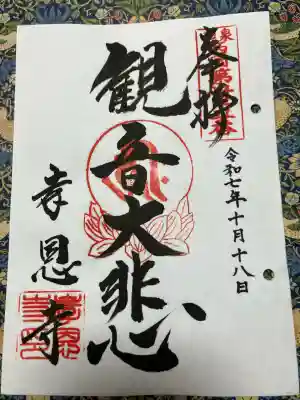 奉拝
令和七年十月十八日
観音大悲心
孝恩寺